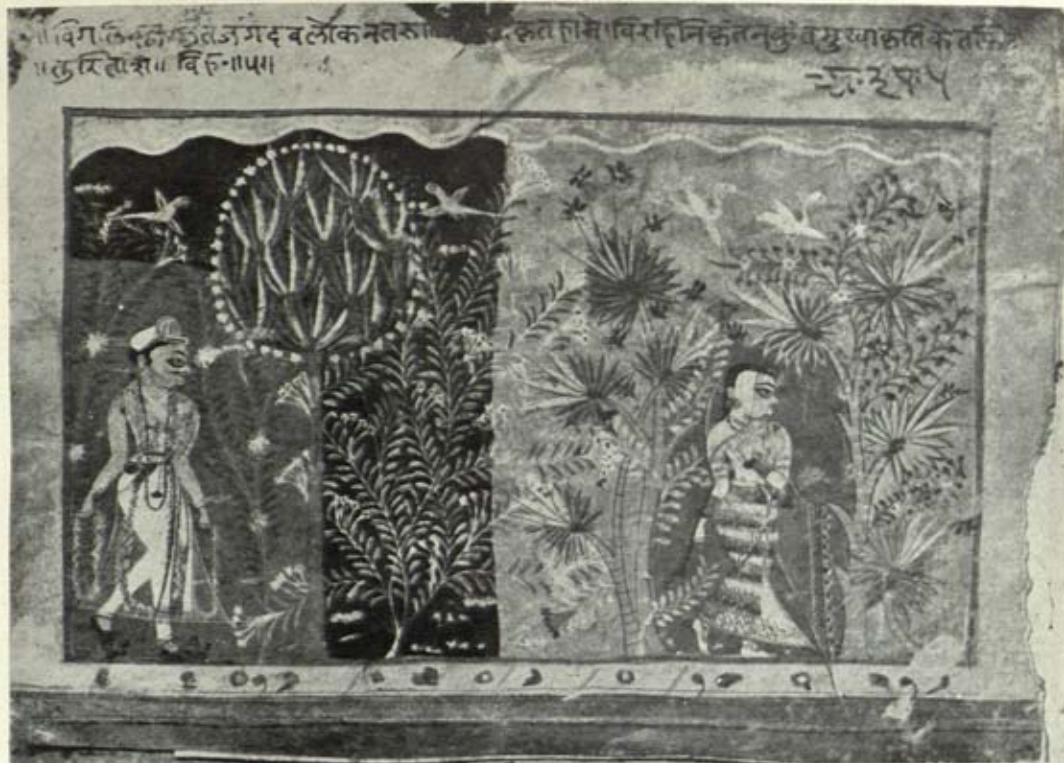 विगलितलज्जितजगदवलोकनतरु कृतहासे।विरहिनिकृतनकुंतमुखाकृतिकेतकि
॥तुरिताशे॥ विह०॥५॥